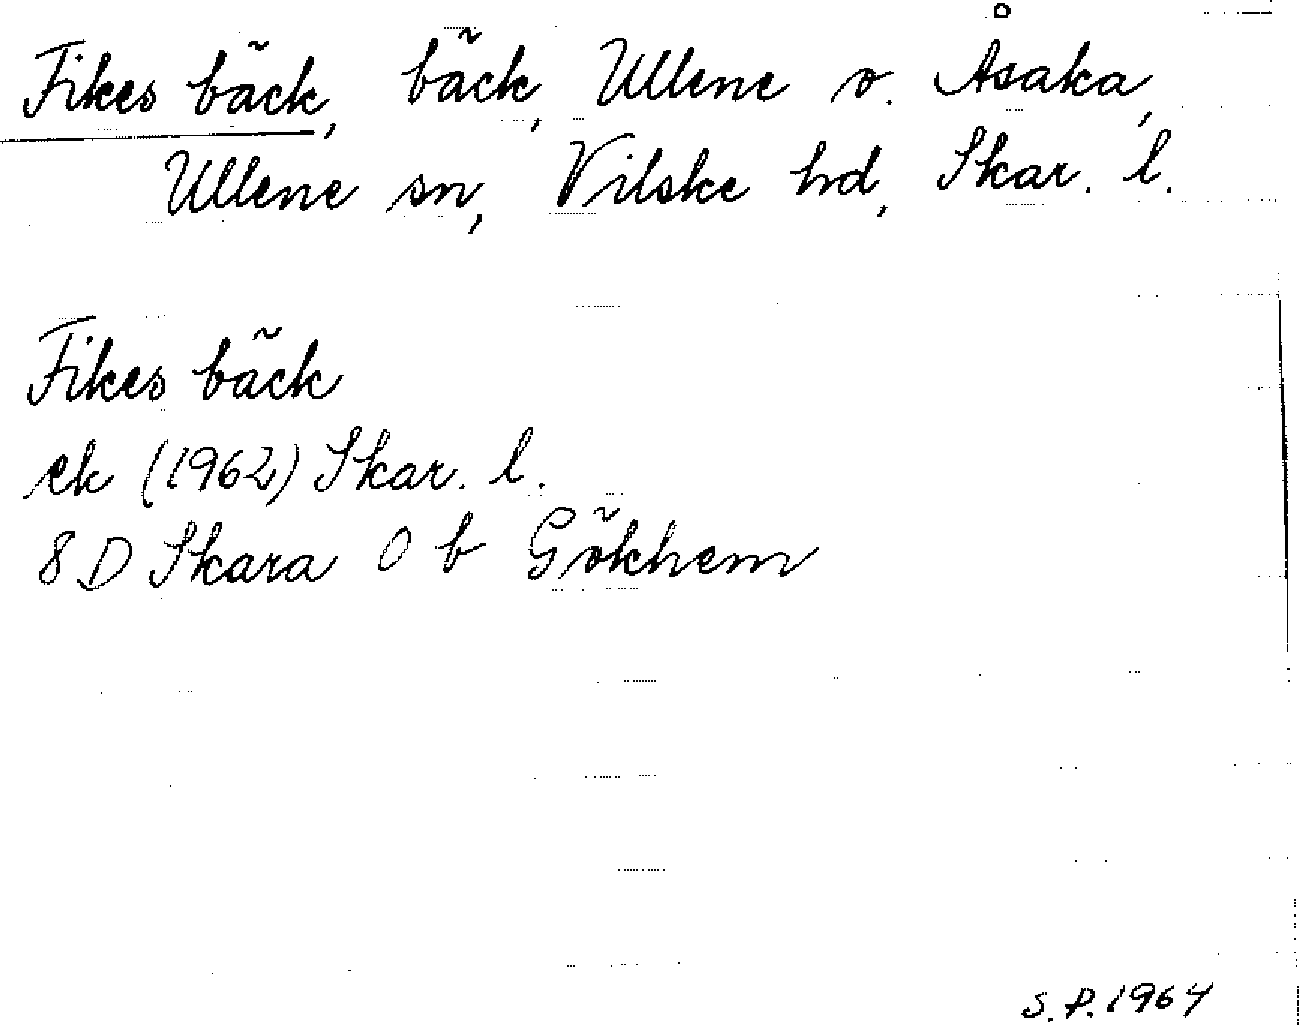 Fikes bäck, bäck, Ullene o. Åsaka,
Ullene sn, Vilske hd, Skar. l.
Fikes bäck
ek (1962) Skar. l.
8 D Skara 0 b Gökhem
S. P. 1964